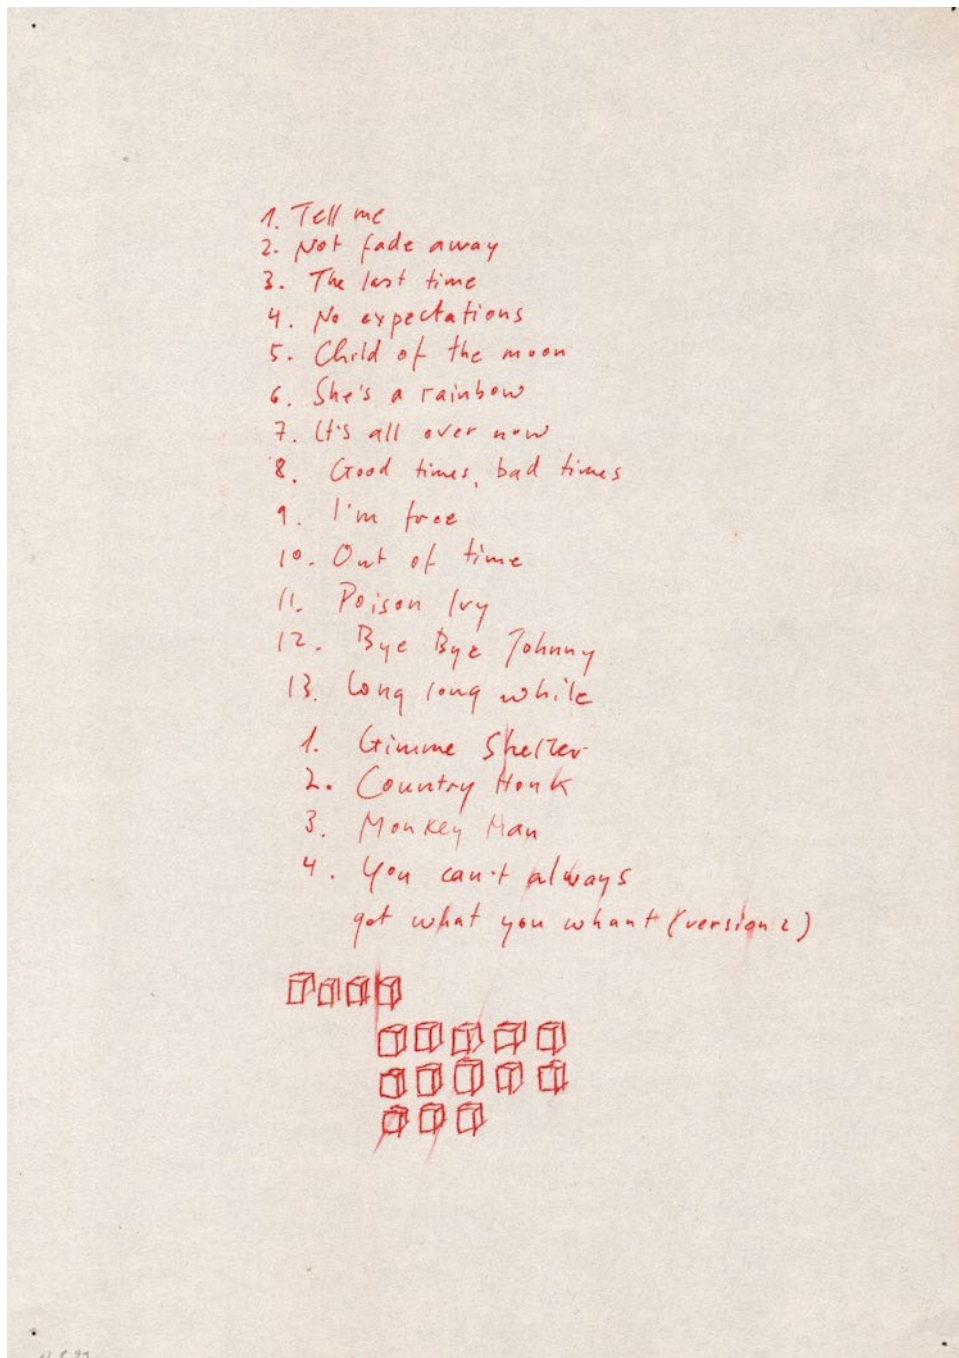 1. Tell me
2. Not fade away
3. The last time
4. No expectations
5. Child of the moon
6. She's a rainbow
7. It's all over now
8. Good times, bad times
9. I'm free
10. Out of time
11. Poison Ivy
12. Bye Bye Johnny
13. Long long while
1. Gimme Shelter
2. Country Honk
3. Monkey Man
4. You can't always
get what you whant (version 2)